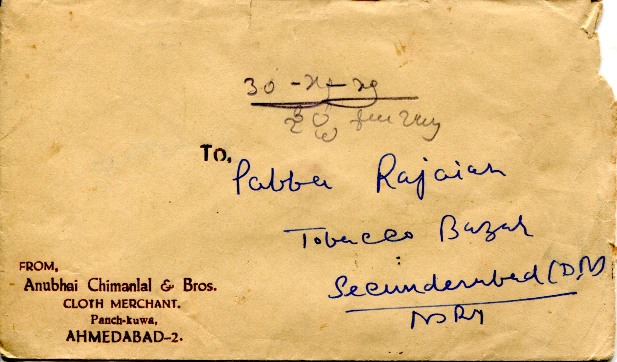 To,
Pabba Rajaiah
Tobacco Bazar
Secunderabad (Dn)
FROM,
Anubhai Chimanlal & Bros.
CLOTH MERCHANT.
Panch-kuwa,
AHMEDABAD-2.